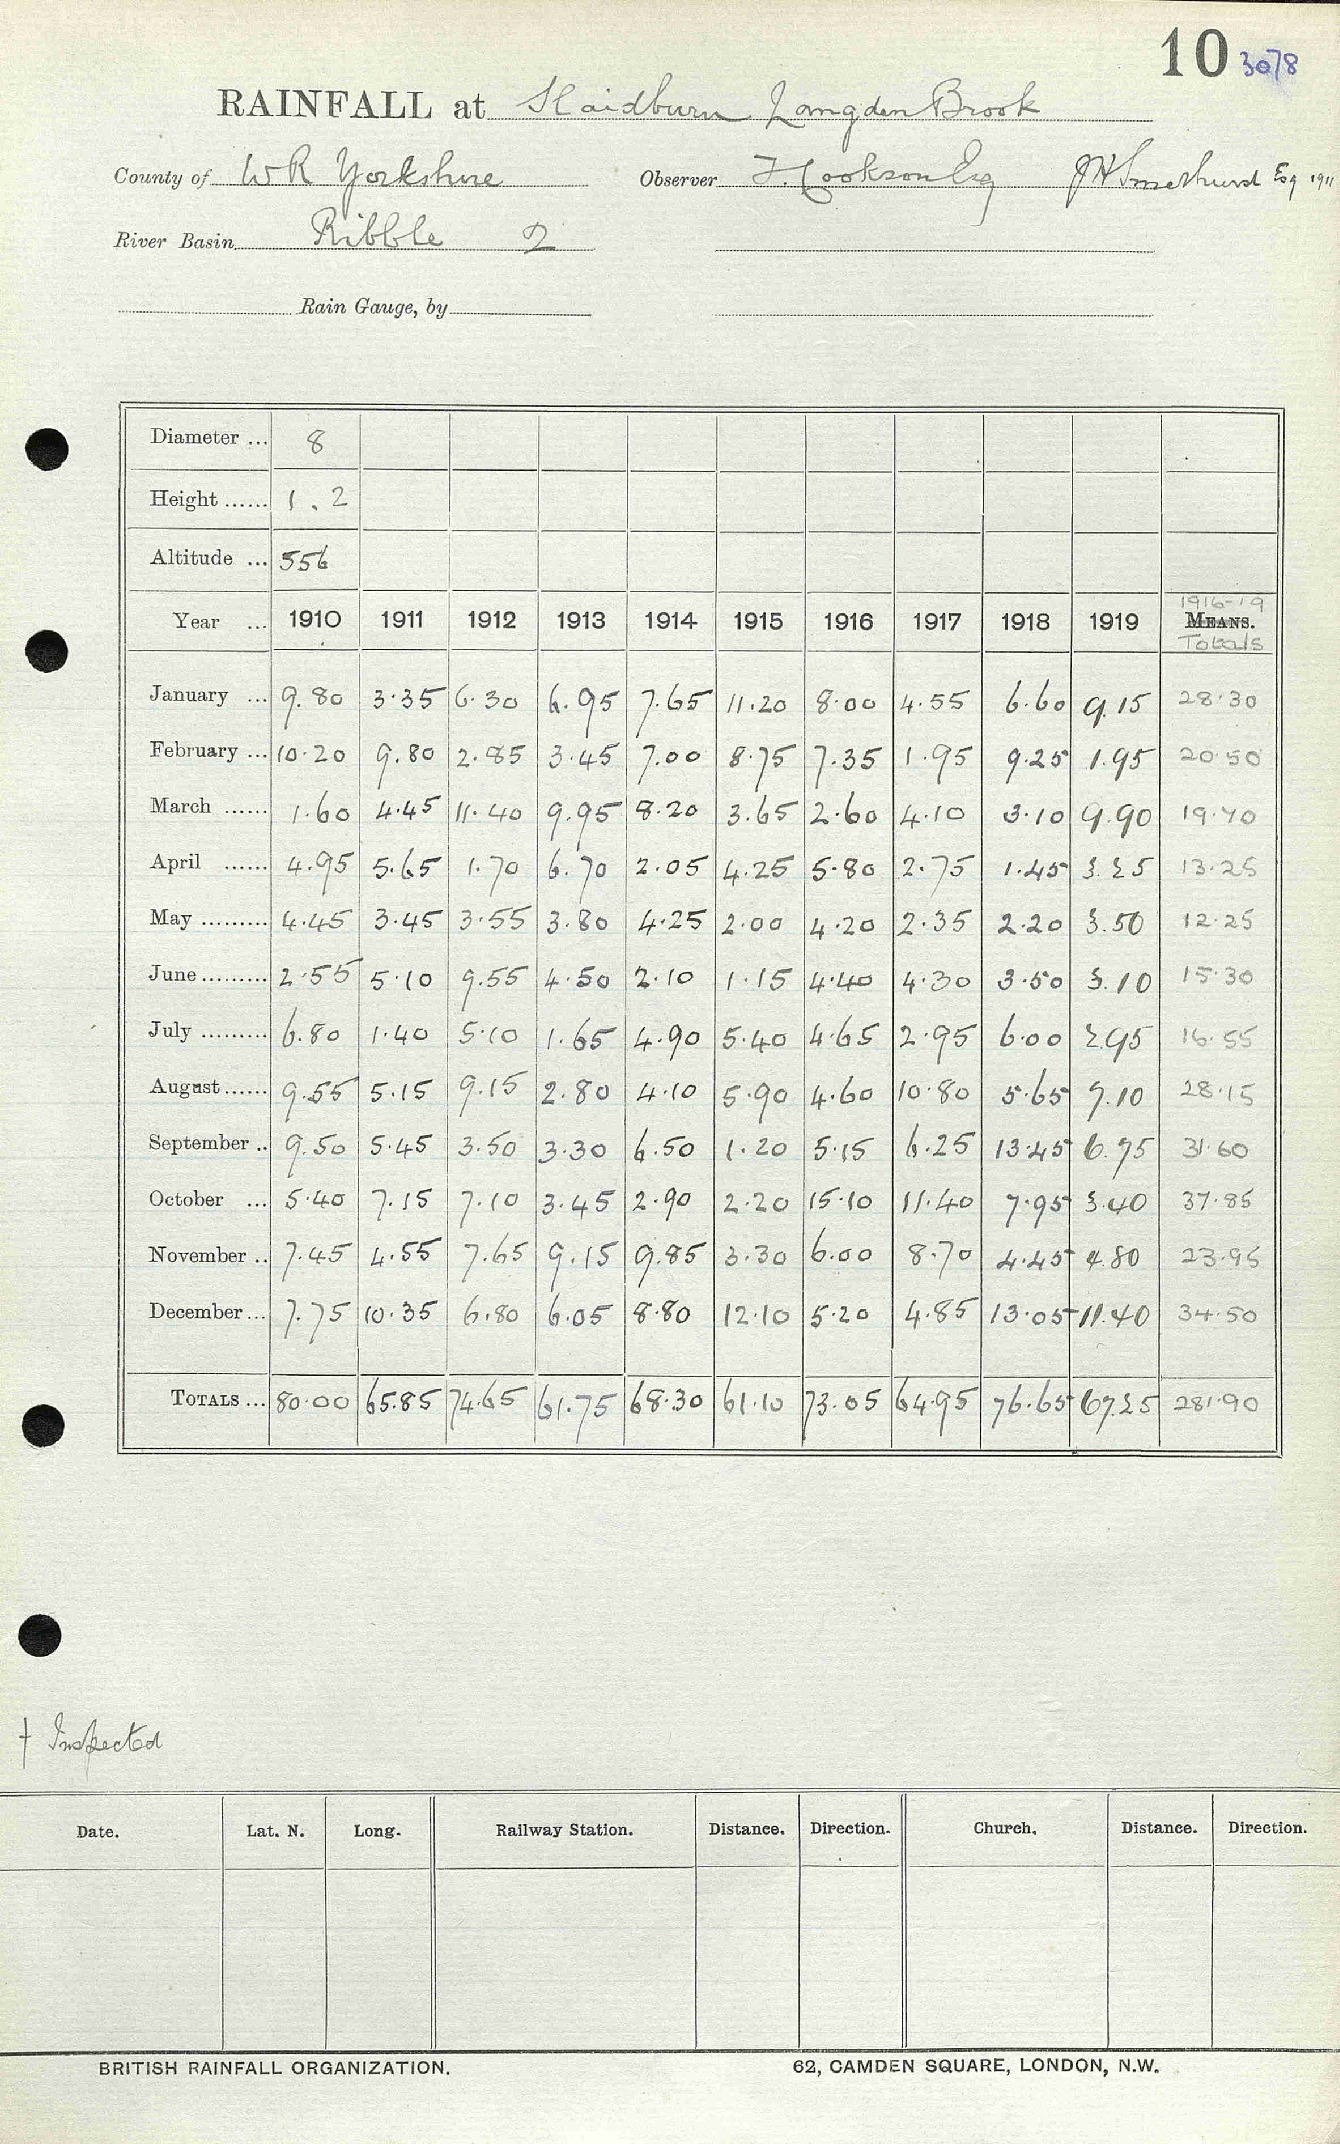 10 3078
RAINFALL at Slaidburn Langden Brook
County of W R Yorkshire Observer T. Cookson Esq J H Smethurst Esq 1911
River Basin Ribble 2
Rain Gauge, by
Diameter ... 8
Height ...... 1.2
Altitude ... 556
Year ... 1910 1911 1912 1913 1914 1915 1916 1917 1918 1919 1916-19 MEANS. Totals
January ... 9.80 3.35 6.30 6.95 7.65 11.20 8.00 4.55 6.60 9.15 28.30
February ... 10.20 9.80 2.85 3.45 7.00 8.75 7.35 1.95 9.25 1.95 20.50
March ...... 1.60 4.45 11.40 9.95 8.20 3.65 2.60 4.10 3.10 9.90 19.70
April ...... 4.95 5.65 1.70 6.70 2.05 4.25 5.80 2.75 1.45 3.25 13.25
May ......... 4.45 3.45 3.55 3.80 4.25 2.00 4.20 2.35 2.20 3.50 12.25
June ......... 2.55 5.10 9.55 4.50 2.10 1.15 4.40 4.30 3.50 3.10 15.30
July ......... 6.80 1.40 5.10 1.65 4.90 5.40 4.65 2.95 6.00 2.95 16.55
August ...... 9.55 5.15 9.15 2.80 4.10 5.90 4.60 10.80 5.65 7.10 28.15
September .. 9.50 5.45 3.50 3.30 6.50 1.20 5.15 6.25 13.45 6.75 31.60
October ... 5.40 7.15 7.10 3.45 2.90 2.20 15.10 11.40 7.95 3.40 37.85
November .. 7.45 4.55 7.65 9.15 9.85 3.30 6.00 8.70 4.45 4.80 23.95
December ... 7.75 10.35 6.80 6.05 8.80 12.10 5.20 4.85 13.05 11.40 34.50
TOTALS ... 80.00 65.85 74.65 61.75 68.30 61.10 73.05 64.95 76.65 67.25 281.90
† Inspected
Date. Lat. N. Long. Railway Station. Distance. Direction. Church. Distance. Direction.
BRITISH RAINFALL ORGANIZATION. 62, CAMDEN SQUARE, LONDON, N.W.